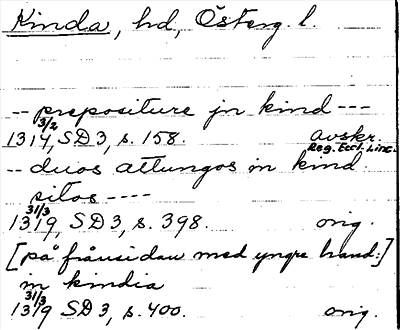 Kinda, hd, Österg. l.
-- prepositure jn kind ---
3/2
1314, SD 3, s. 158. avskr.
Reg. Eccl. Linc.
-- duos attungos in kind
sitos ----
31/3
1319, SD 3, s. 398. orig.
[på frånsidan med yngre hand:]
in kindia
31/3
1319 SD 3, s. 400. orig.